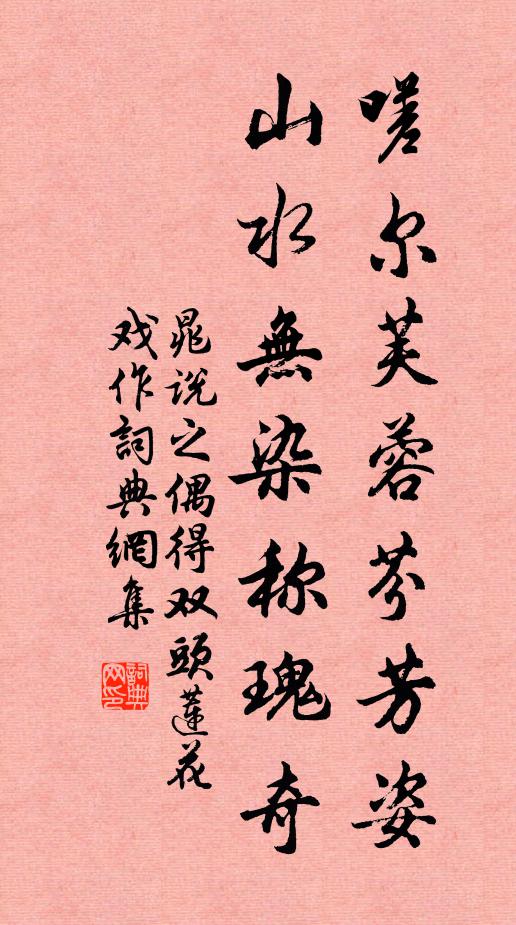 嗟尔芙蓉芬芳姿
山水無染称瑰奇
晁说之偶得双頭蓮花
戏作詞典網集
詞典网印